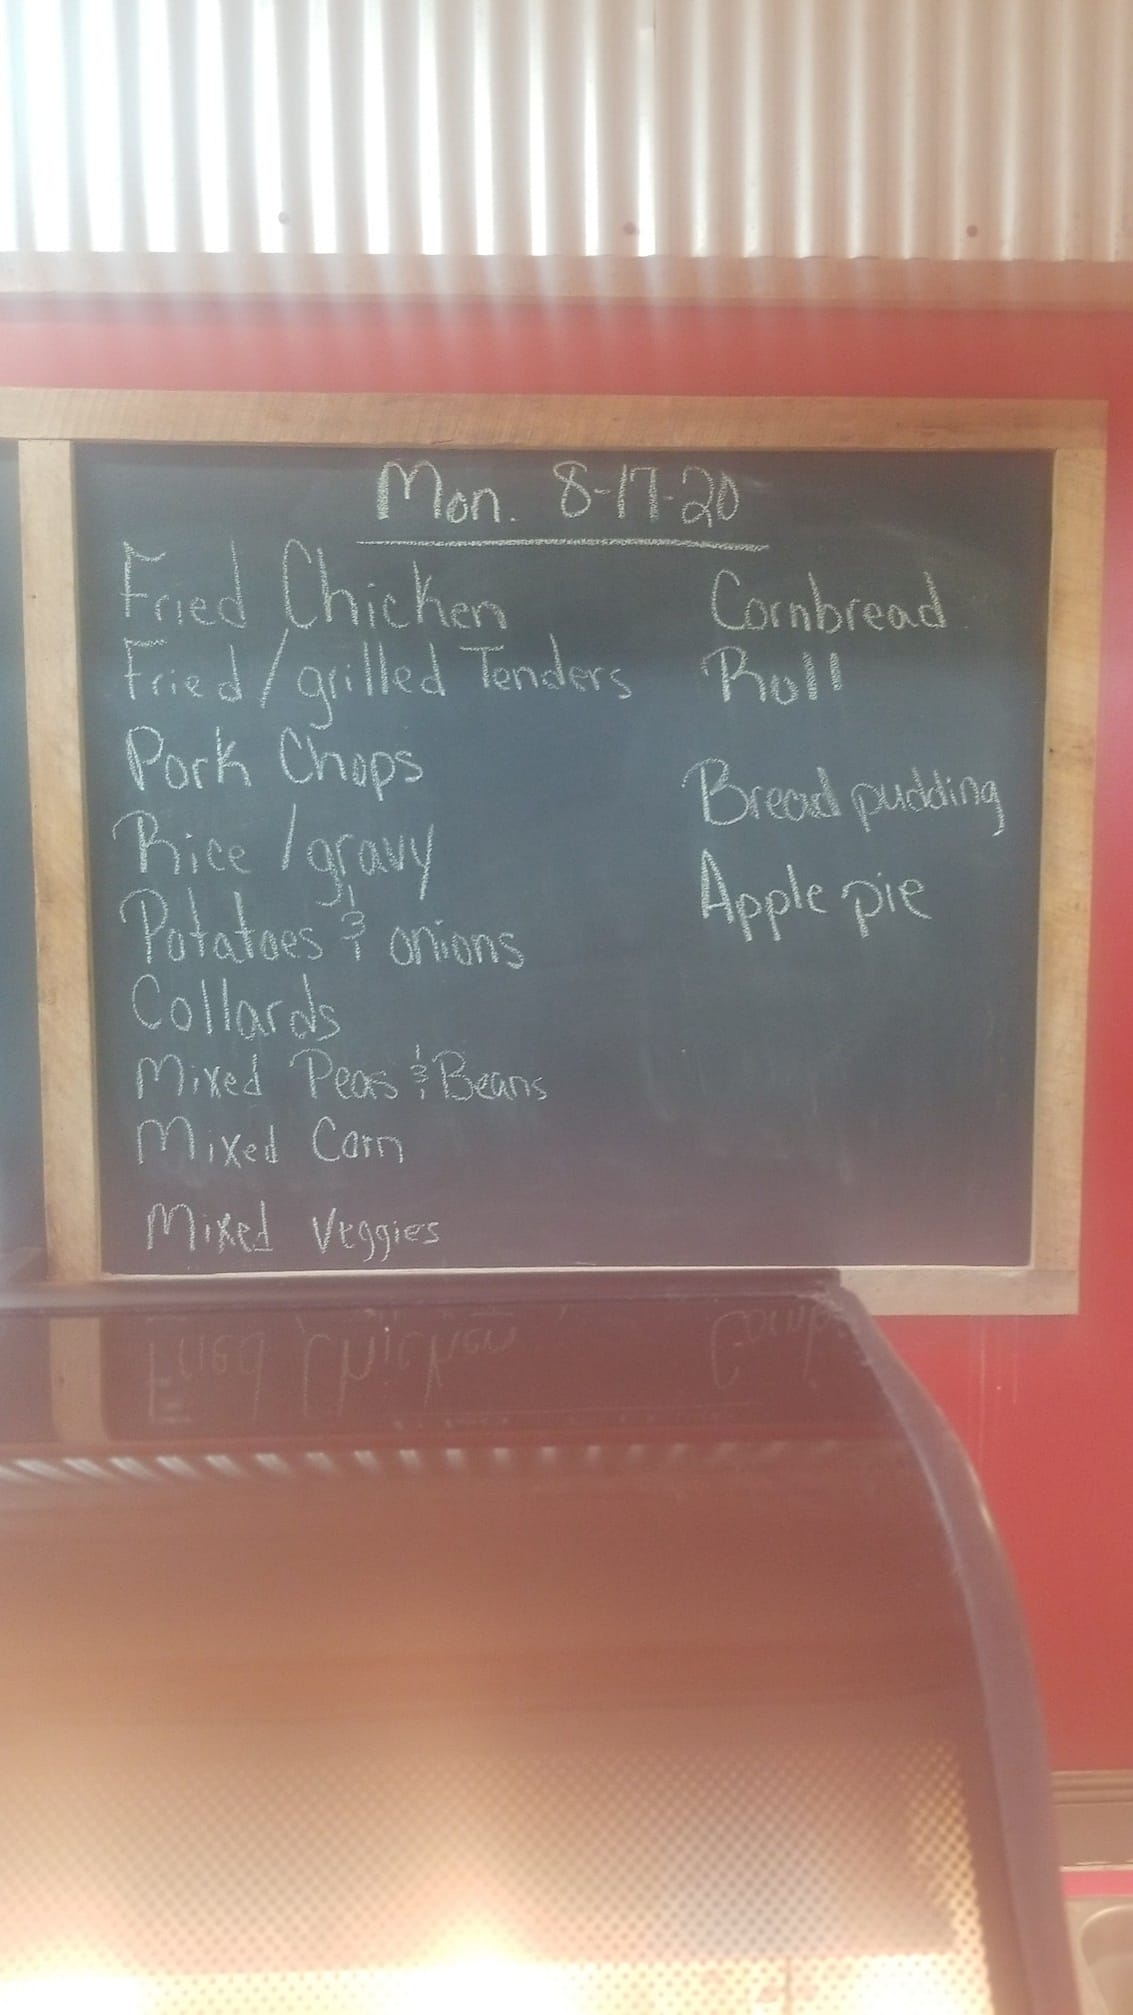 Mon. 8-17-20
Fried Chicken
Fried/grilled Tenders
Pork Chops
Rice/gravy
Potatoes & onions
Collards
Mixed Peas & Beans
Mixed Corn
Mixed Veggies
Cornbread
Roll
Bread pudding
Apple pie